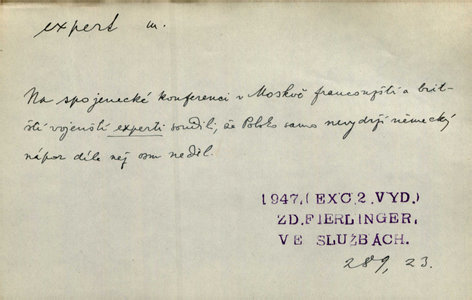 expert m.
Na spojenecké konferenci v Moskvě francouzští a brit-
ští vojenští experti soudili, že Polsko samo nevydrží německý
nápor déle než osm neděl.
1947.(EXC.2.VYD.)
ZD.FIERLINGER,
VE SLUŽBÁCH.
289, 23.